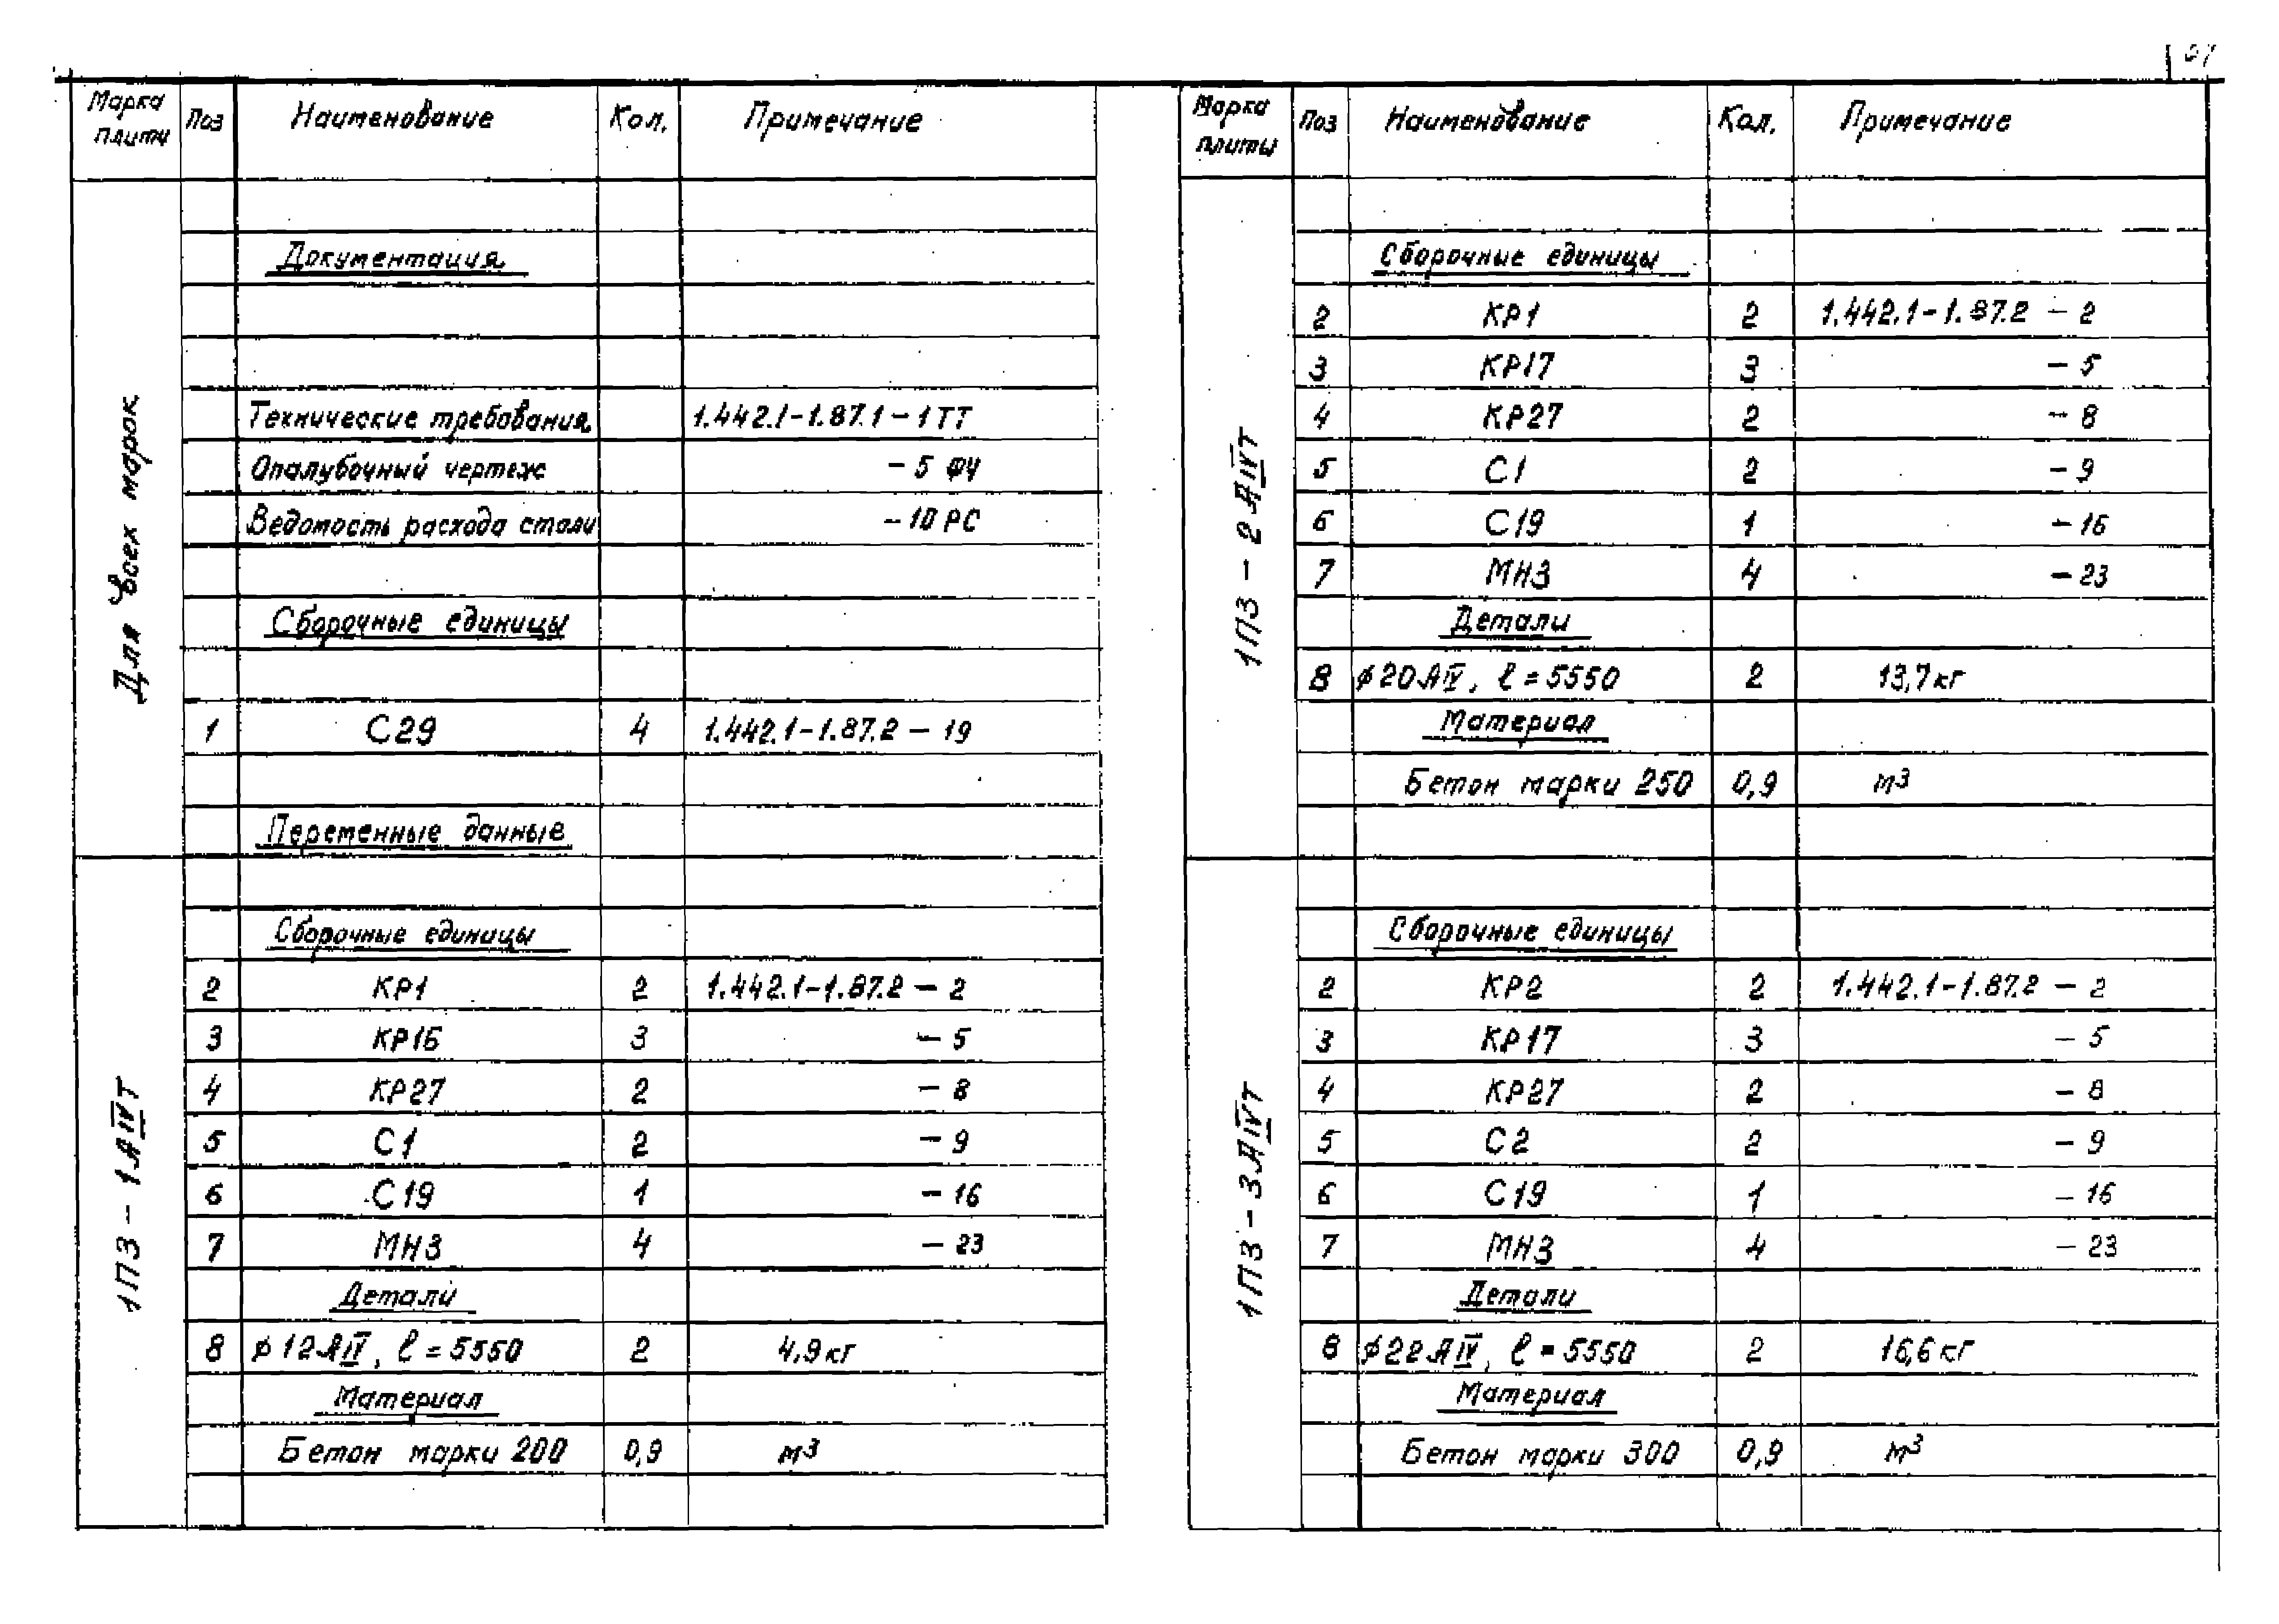 Марка плиты Поз Наименование Кол. Примечание
Для всех марок
Документация
Технические требования 1.442.1-1.87.1-1ТТ
Опалубочный чертеж -5 ФЧ
Ведомость расхода стали -10 РС
Сборочные единицы
1 С29 4 1.442.1-1.87.2-19
Переменные данные
1П3-1АIVТ
Сборочные единицы
2 КР1 2 1.442.1-1.87.2-2
3 КР16 3 -5
4 КР27 2 -8
5 С1 2 -9
6 С19 1 -16
7 МН3 4 -23
Детали
8 ⌀12АIV, ℓ=5550 2 4,9кг
Материал
Бетон марки 200 0,9 м3
Марка плиты Поз Наименование Кол. Примечание
1П3-2АIVТ
Сборочные единицы
2 КР1 2 1.442.1-1.87.2 -2
3 КР17 3 -5
4 КР27 2 -8
5 С1 2 -9
6 С19 1 -16
7 МН3 4 -23
Детали
8 ⌀20АIV, ℓ=5550 2 13,7кг
Материал
Бетон марки 250 0,9 м3
1П3-3АIVТ
Сборочные единицы
2 КР2 2 1.442.1-1.87.2 -2
3 КР17 3 -5
4 КР27 2 -8
5 С2 2 -9
6 С19 1 -16
7 МН3 4 -23
Детали
8 ⌀22АIV, ℓ=5550 2 16,6кг
Материал
Бетон марки 300 0,9 м3